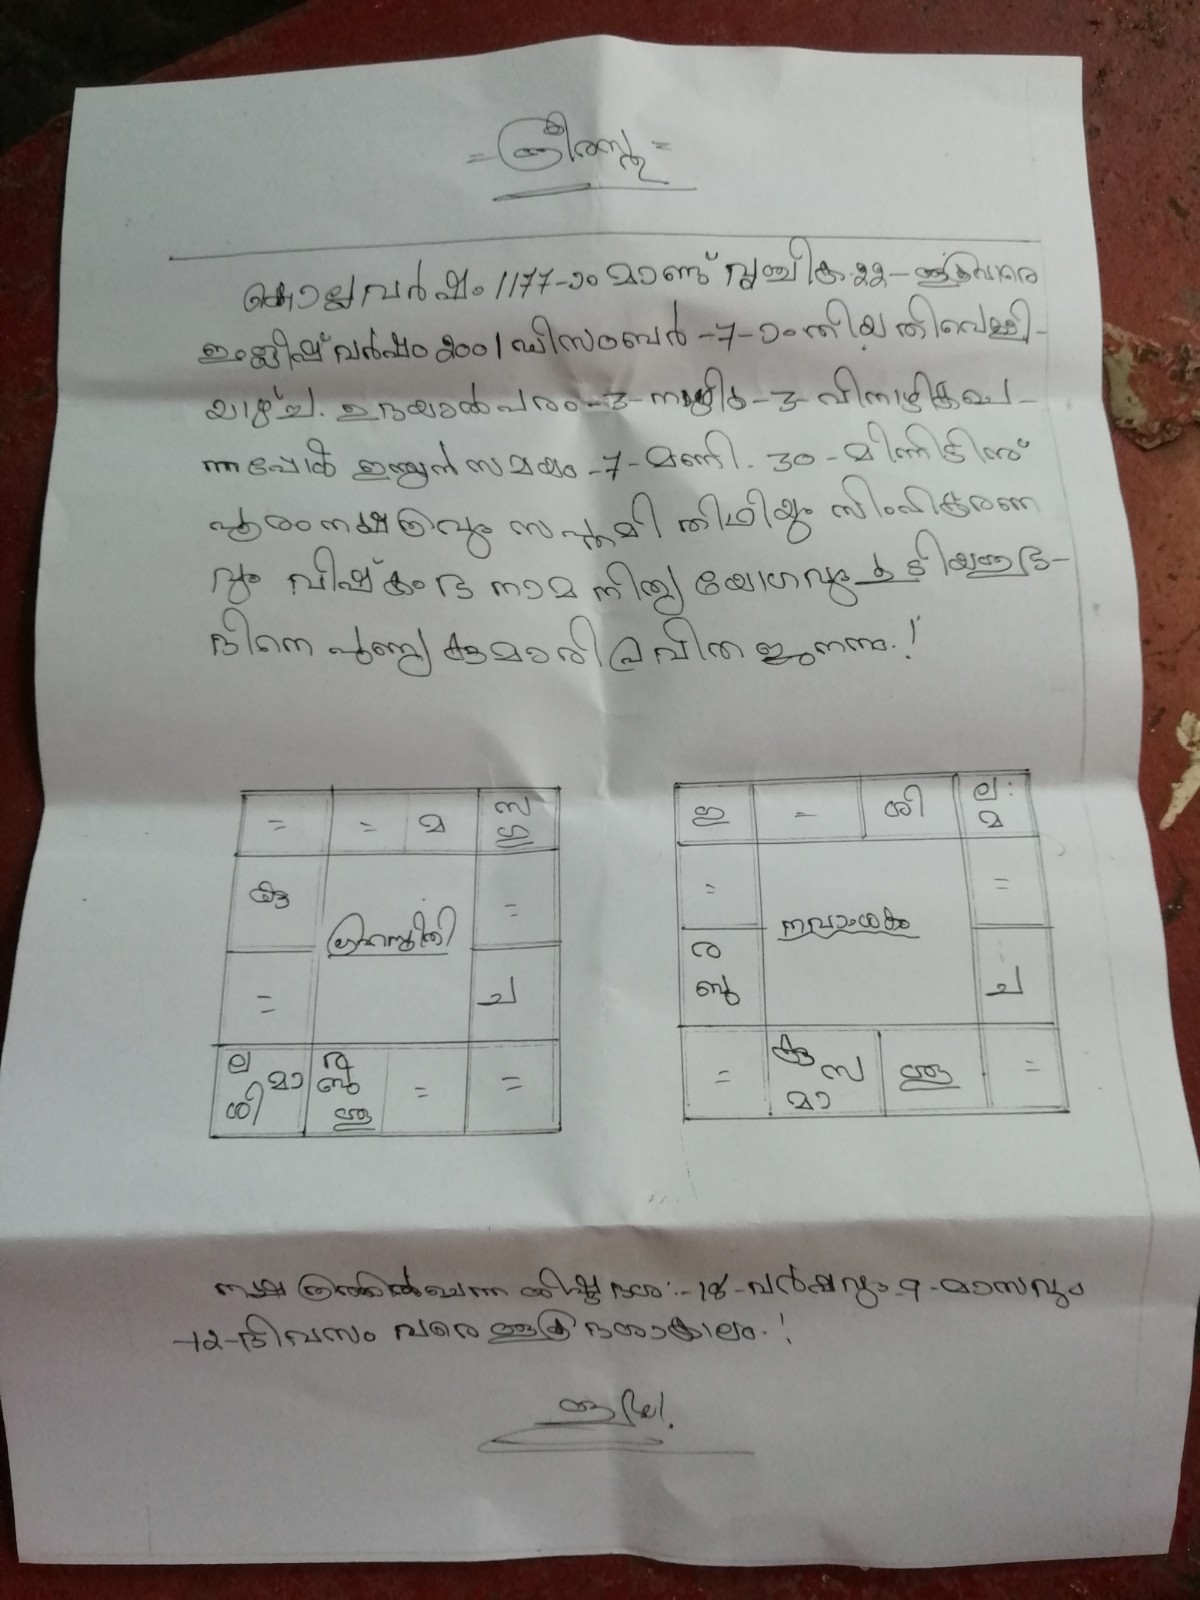 = ശ്രീരസ്തു =
കൊല്ലവർഷം 1177-ാം മാണ്ട് വൃശ്ചികം 22-
ഇംഗ്ലീഷ് വർഷം 2001 ഡിസംബർ -7-ാം തീയതി വെള്ളി-
യാഴ്ച. ഉദയാൽപരം -3- നാഴിക -3- വിനാഴികചെ-
ന്നപ്പോൾ ഇന്ത്യൻ സമയം -7- മണി. 30 - മിനിട്ടിന്
പൂരം നക്ഷത്രവും സപ്തമി തിഥിയും സിംഹകരണ
വും വിഷ്കംഭ നാമ നിത്യ യോഗവും കൂടിയ
ദിനെ പുണ്യ കുമാരി പ്രവിത ജനനം.!
= = മ സ ഗു
കു =
ഗ്രഹസ്ഥിതി
= ച
ല മാ ശി ര ബു ശു = =
ഗു = ശി ല: മ
= =
നവാംശകം
ര ബു ച
= കു സ മാ ശു =
നക്ഷത്രത്തിൽചെന്ന ശിഷ്ട ദശ:- 18 - വർഷവും 9 - മാസവും
-12- ദിവസം വരെ ശുക്ര ദശാകാലം.!
ശുഭം!